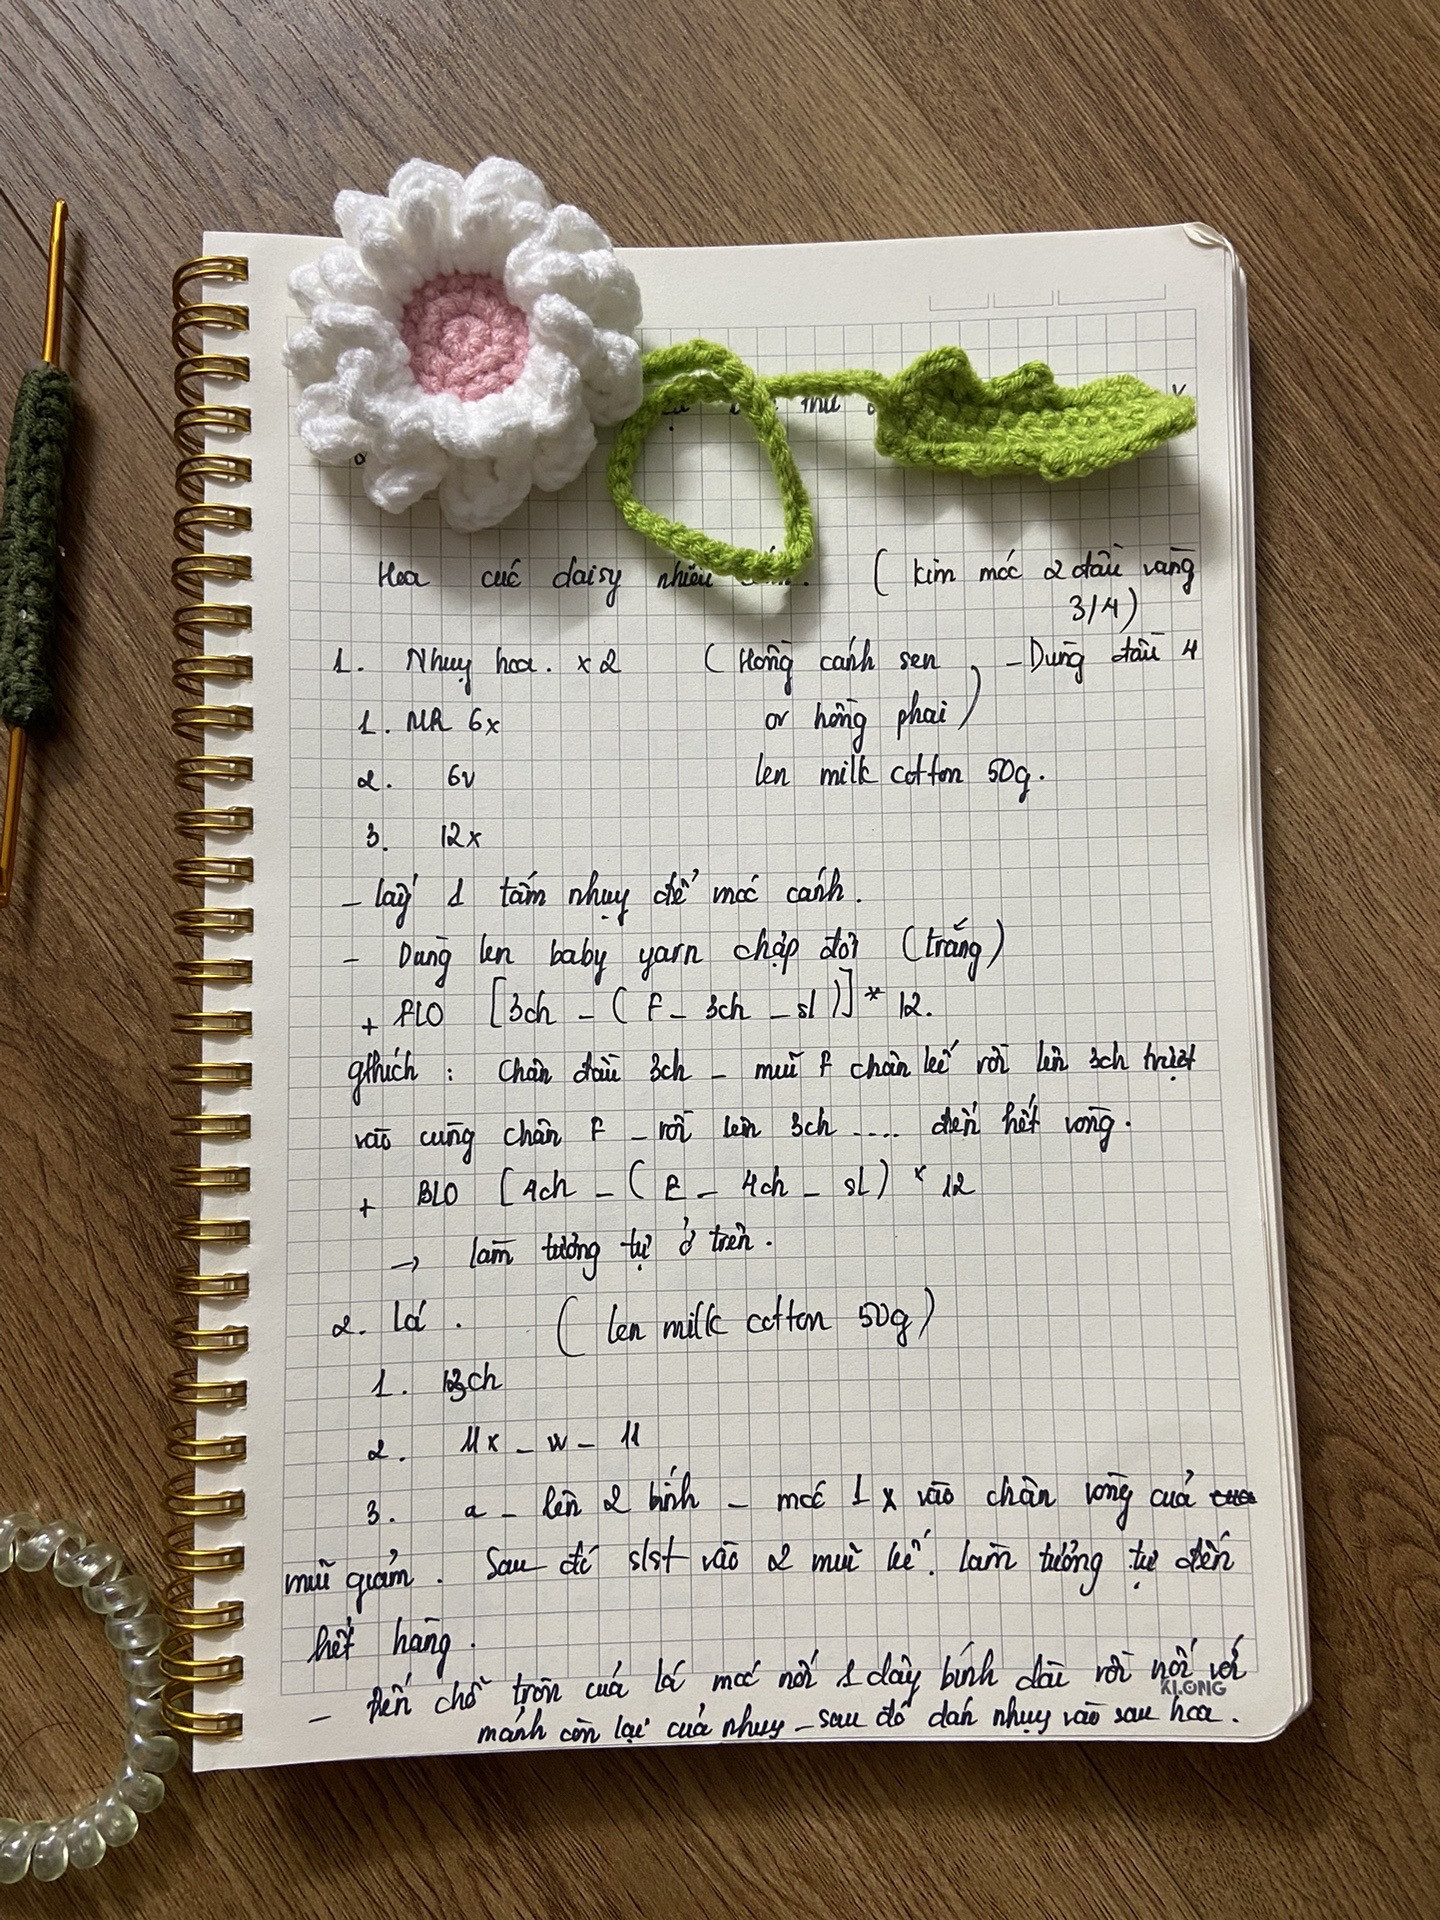 thứ
Hoa cúc daisy nhiều cánh. ( kim móc 2 đầu vàng
3/4)
1. Nhụy hoa. x2 ( Hồng cánh sen , - Dùng đầu 4
1. MR 6x or hồng phai )
2. 6v len milk cotton 50g.
3. 12x
- lấy 1 tấm nhụy để móc cánh.
- Dùng len baby yarn chập đôi (trắng)
+ FLO [3ch - ( F - 3ch - sl )] * 12.
gthích : Chân đầu 3ch - mũi F chân kế rồi lên 3ch trượt
vào cùng chân F - rồi lên 3ch .... đến hết vòng.
+ BLO [4ch - ( E - 4ch - sl ) * 12
→ làm tương tự ở trên.
2. Lá . ( len milk cotton 50g)
1. ch
2. 11x - w - 11
3. a - lên 2 bính - móc 1 x vào chân vòng của
mũi giảm . Sau đó slst vào 2 mũi kế. làm tương tự đến
hết hàng.
- Đến chỗ tròn của lá móc nối 1 dây bính dài rồi nối với
KLONG
mảnh còn lại của nhụy - sau đó dán nhụy vào sau hoa.